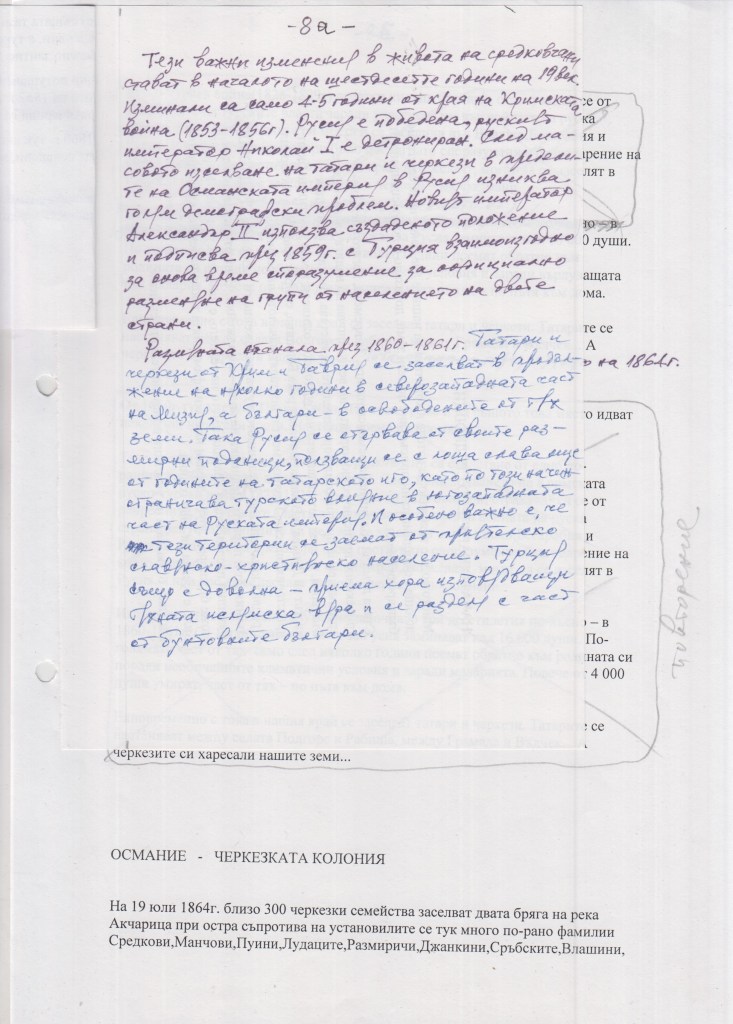 -8а-
Тези важни изменения в живота на средковчани
стават в началото на шестдесетте години на 19 век.
Изминали са само 4-5 години от края на Кримската
война (1853-1856г). Русия е победена, руският
император Николай I е детрониран. След ма-
совото изселване на татари и черкези в предели-
те на Османската империя в Русия изникват
големи демографски проблеми. Новият император
Александър II използва създаденото положение
и подписва през 1859г. с Турция взаимоизгодно
за онова време споразумение за официално
разменяне на групи от населението на двете
страни.
Размяната станала през 1860-1861г. Татари и
черкези от Крим и Таврия се заселват в продъл-
жение на няколко години в северозападната част
на Мизия, а българи - в освободените от тях
земи. Така Русия се отървава от своите раз-
мирни поданици, ползващи се с лоша слава още
от годините на татарското иго, като по този начин
ограничава турското влияние в югозападната
част на Руската империя. И особено важно е, че
тези територии се заемат от приятелско
славянско-християнско население. Турция
също е доволна - приема хора изповядващи
тяхната ислямска вяра и се разделя с част
от бунтовните българи.
се от
ка
ия и
арение на
лят в
но – в
0 души.
ащата
ома.
те се
А
на 1864г.
го идват
ката
е от
а
и
ение на
лят в
о – в
По-
ината си
4 000
е се
А
черкезите си харесали нашите земи...
повторение
ОСМАНИЕ - ЧЕРКЕЗКАТА КОЛОНИЯ
На 19 юли 1864г. близо 300 черкезки семейства заселват двата бряга на река
Акчарица при остра съпротива на установилите се тук много по-рано фамилии
Средкови,Манчови,Пуини,Лудаците,Размиричи,Джанкини,Сръбските,Влашини,